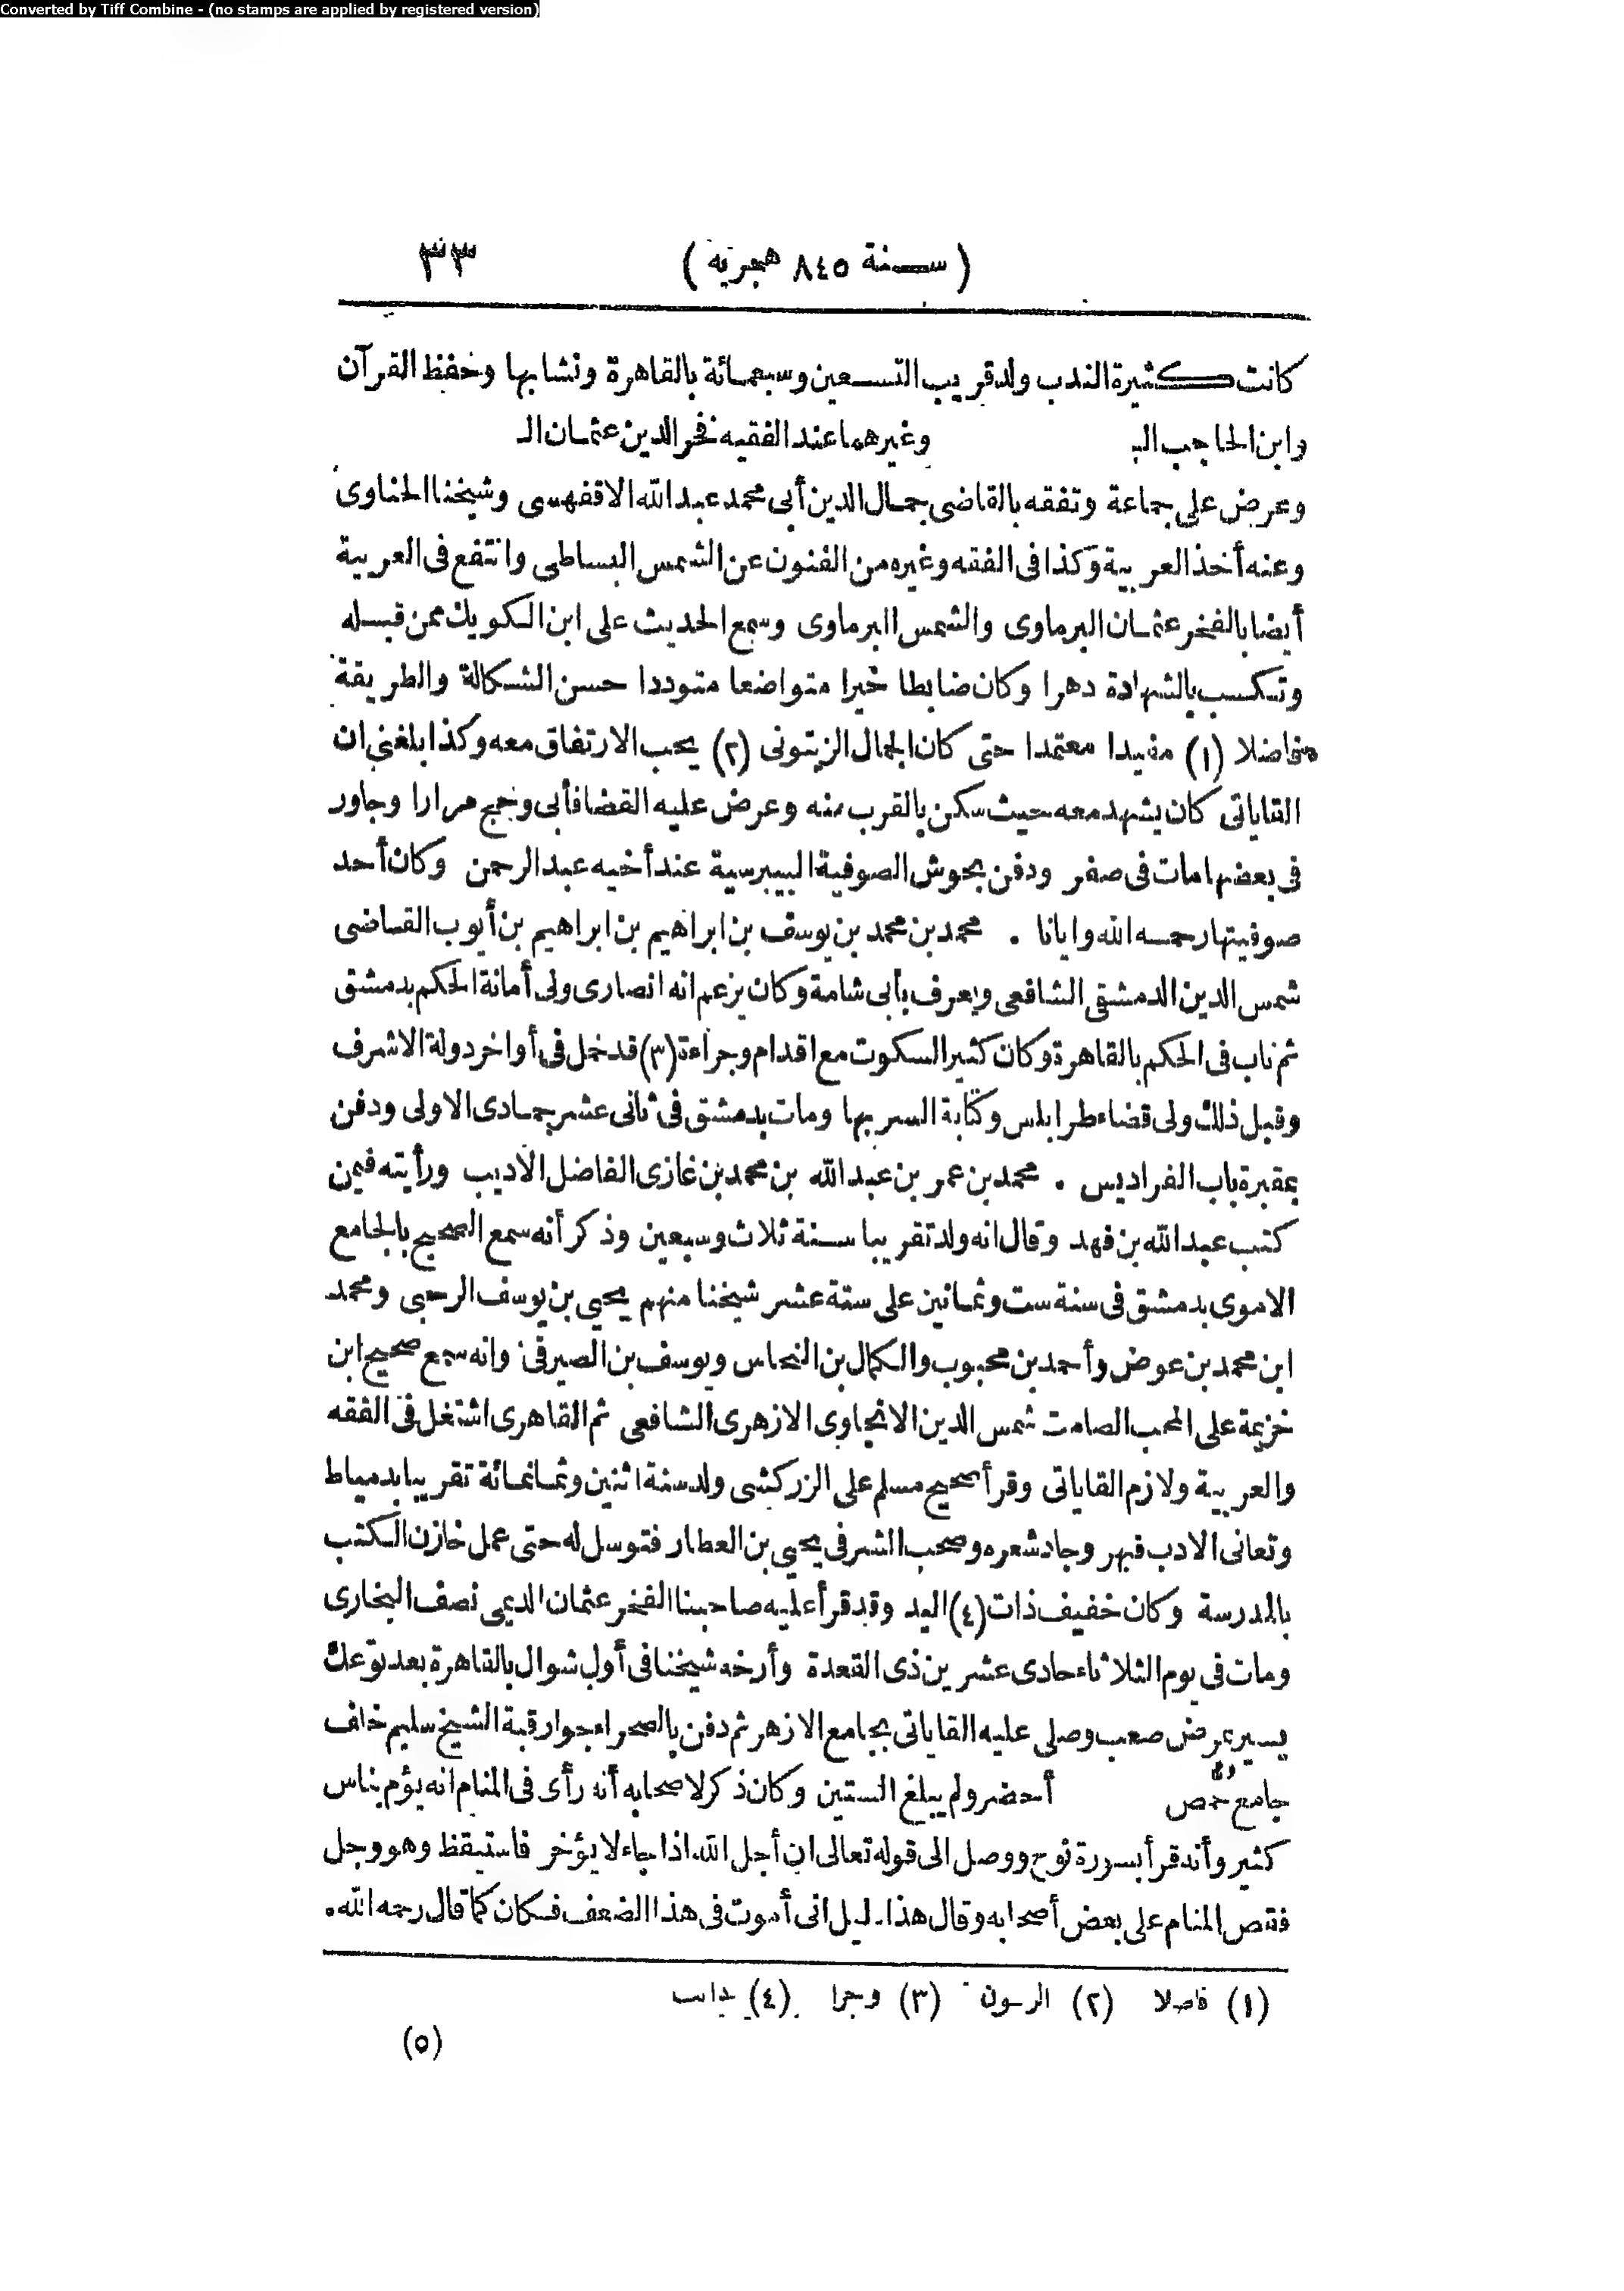 Converted by Tiff Combine - (no stamps are applied by registered version)
(سنة ٨٤٥ هجرية) ٣٣
كانت كثيرة الندب ولد قريب التسعين وسبعمائة بالقاهرة ونشابها وحفظ القرآن
وابن الحاجب الـ وغيرهما عند الفقيه فخر الدين عثمان الـ
وعرض على جماعة وتفقه بالقاضى جمال الدين أبى محمد عبد الله الاقفهسى وشيخنا الحناوى
وعنه أخذ العربية وكذا فى الفقه وغيره من الفنون عن الشمس البساطى وانتفع فى العربية
أيضا بالفخر عثمان البرماوى والشمس البرماوى وسمع الحديث على ابن الكويك ممن قبله
وتكسب بالشهادة دهرا وكان ضابطا خيرا متواضعا متوددا حسن الشكالة والطريقة
متفاضلا (١) مفيدا معتمدا حتى كان الجمال الزيتونى (٢) يحب الارتفاق معه وكذا بلغنى ان
القاياتى كان يشهد معه حيث سكن بالقرب منه وعرض عليه القضا فأبى وحج مرارا وجاور
فى بعضها مات فى صفر ودفن بحوش الصوفية البيبرسية عند أخيه عبد الرحمن وكان أحد
صوفيتها رحمه الله وايانا . محمد بن محمد بن يوسف بن ابراهيم بن ابراهيم بن أيوب القاضى
شمس الدين الدمشقى الشافعى ويعرف بأبى شامة وكان يزعم انه انصارى ولى أمانة الحكم بدمشق
ثم ناب فى الحكم بالقاهرة وكان كثير السكوت مع اقدام وجراءة (٣) قد خمل فى أواخر دولة الاشرف
وقبل ذلك ولى قضاء طرابلس وكتابة السر بها ومات بدمشق فى ثانى عشر جمادى الاولى ودفن
بمقبرة باب الفراديس . محمد بن عمر بن عبد الله بن محمد بن غازى الفاضل الاديب ورأيته فيمن
كتب عبد الله بن فهد وقال انه ولد تقريبا سنة ثلاث وسبعين وذكر أنه سمع الصحيح بالجامع
الاموى بدمشق فى سنة ست وثمانين على ستة عشر شيخنا منهم يحيى بن يوسف الرحبى ومحمد
ابن محمد بن عوض وأحمد بن محبوب والكمال بن النحاس ويوسف بن الصيرفى وانه سمع صحيح ابن
خزيمة على المحب الصامت شمس الدين الانجاوى الازهرى الشافعى ثم القاهرى اشتغل فى الفقه
والعربية ولازم القاياتى وقرأ صحيح مسلم على الزركشى ولد سنة اثنين وثمانمائة تقريبا بدمياط
وتعانى الادب فبهر وجاد شعره وصحب الشرفى يحيى بن العطار فتوسل له حتى عمل خازن الكتب
بالمدرسة وكان خفيف ذات (٤) اليد وقد قرأ عليه صاحبنا الفخر عثمان الديمى نصف البخارى
ومات فى يوم الثلاثاء حادى عشرين ذى القعدة وأرخه شيخنا فى أول شوال بالقاهرة بعد توعك
يسير بمرض صعب وصلى عليه القاياتى بجامع الازهر ثم دفن بالصحراء جوار قبة الشيخ سليم خلف
جامع حمص أحضر ولم يبلغ الستين وكان ذكر لاصحابه أنه رأى فى المنام انه يؤم بناس
كثير وأنه قرأ بسورة نوح ووصل الى قوله تعالى ان أجل الله اذا جاء لا يؤخر فاستيقظ وهو وجل
فقص المنام على بعض أصحابه وقال هذا دليل انى أموت فى هذا الضعف فكان كما قال رحمه الله .
(١) فاصلا (٢) الرسون (٣) وجرا (٤) داس
(٥)